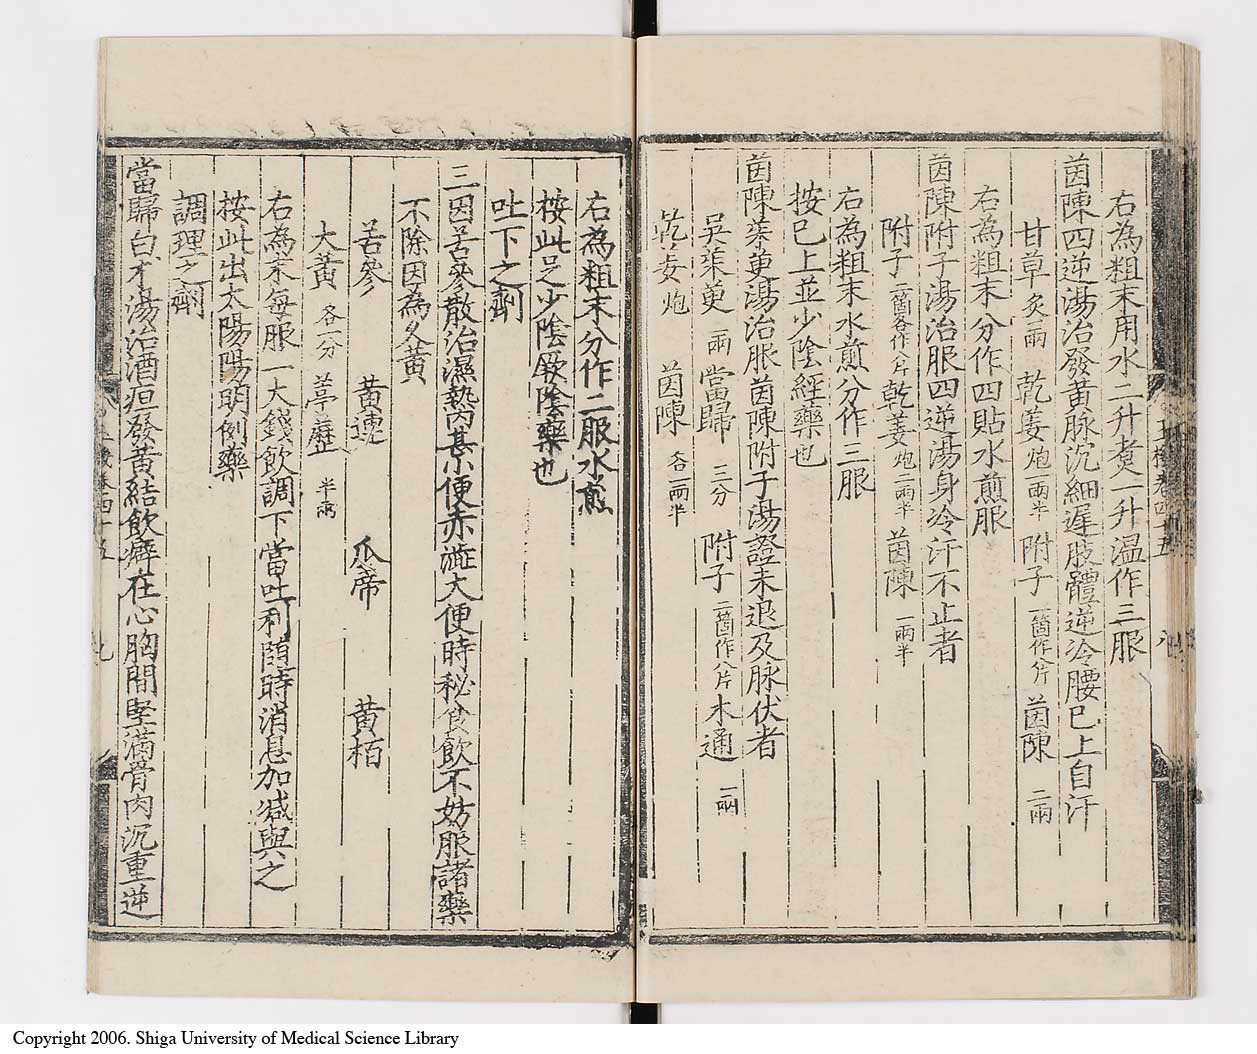 右為粗末用水二升煑一升温作三服
茵陳四逆湯治發黄脉沉細遲肢體逆冷腰已上自汗
甘草 炙一兩 乾姜 炮一兩半 附子 一箇作八片 茵陳 二兩
右為粗末分作四貼水煎服
茵陳附子湯治服四逆湯身冷汗不止者
附子 二箇各作八片 乾姜 炮二兩半 茵陳 一兩半
右為粗末水煎分作三服
按已上並少陰經藥也
茵陳茱萸湯治服茵陳附子湯證未退及脉伏者
吳茱萸 一兩 當歸 三分 附子 二箇作八片 木通 一兩
乾姜 炮 茵陳 各一兩半
右為粗末分作二服水煎
按此足少陰厥陰藥也
吐下之劑
三因苦參散治濕熱内甚小便赤澁大便時秘食飲不妨服諸藥
不除因為久黄
苦參 黄連 瓜蒂 黄栢
大黄 各一分 葶藶 半兩
右為末每服一大錢飲調下當吐利随時消息加減與之
按此出太陽陽明例藥
調理之劑
當歸白术湯治酒疸發黄結飲癖在心胸間堅滿骨肉沉重逆
卷四十五
八
九
Copyright 2006. Shiga University of Medical Science Library